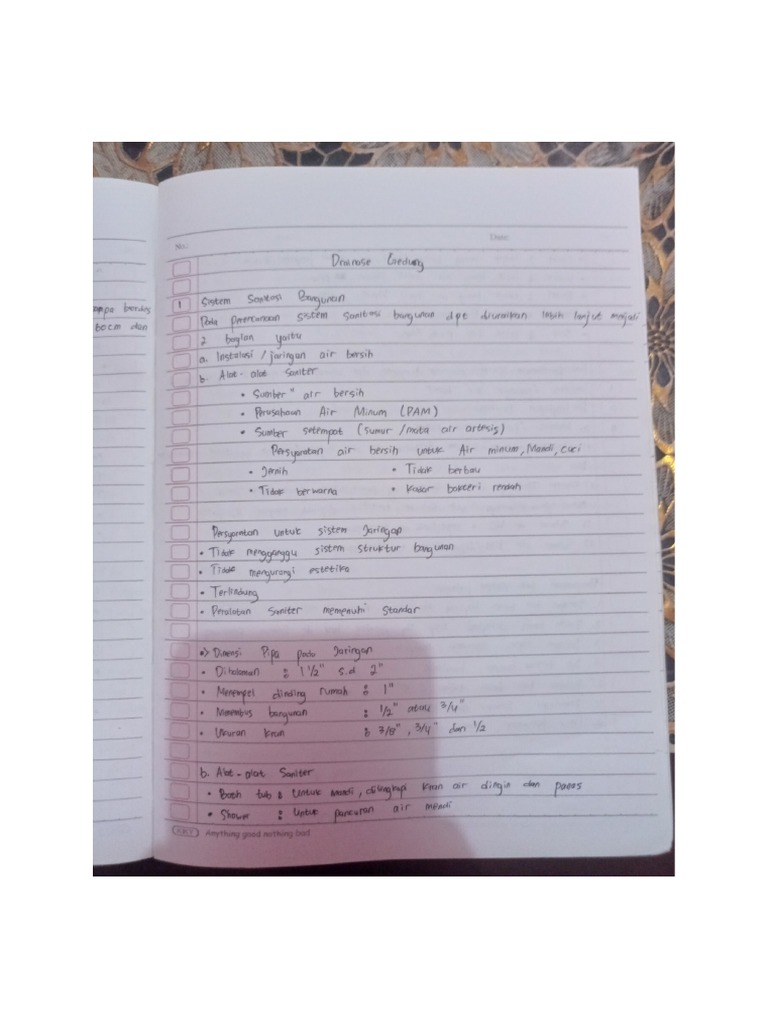 ampa bordes
60cm dan
No.:
Date:
Drainase Gedung
1 Sistem Sanitasi Bangunan
Pada perencanaan sistem sanitasi bangunan dpt diuraikan lebih lanjut menjadi
2 bagian yaitu
a. Instalasi / jaringan air bersih
b. Alat-alat saniter
• Sumber" air bersih
• Perusahaan Air Minum (PAM)
• Sumber setempat (sumur / mata air artesis)
Persyaratan air bersih untuk Air minum, Mandi, cuci
• Jernih • Tidak berbau
• Tidak berwarna • Kadar bakteri rendah
Persyaratan untuk sistem Jaringan
• Tidak mengganggu sistem struktur bangunan
• Tidak mengurangi estetika
• Terlindung
• Peralatan Saniter memenuhi Standar
•> Dimensi Pipa pada Jaringan
• Dihalaman : 1 1/2" s.d 2"
• Menempel dinding rumah : 1"
• Menembus bangunan : 1/2" atau 3/4"
• Ukuran kran : 3/8", 3/4" dan 1/2
b. Alat-alat Saniter
• Bath tub : Untuk mandi, dilengkapi kran air dingin dan panas
• Shower : Untuk pancuran air mandi
Anything good nothing bad